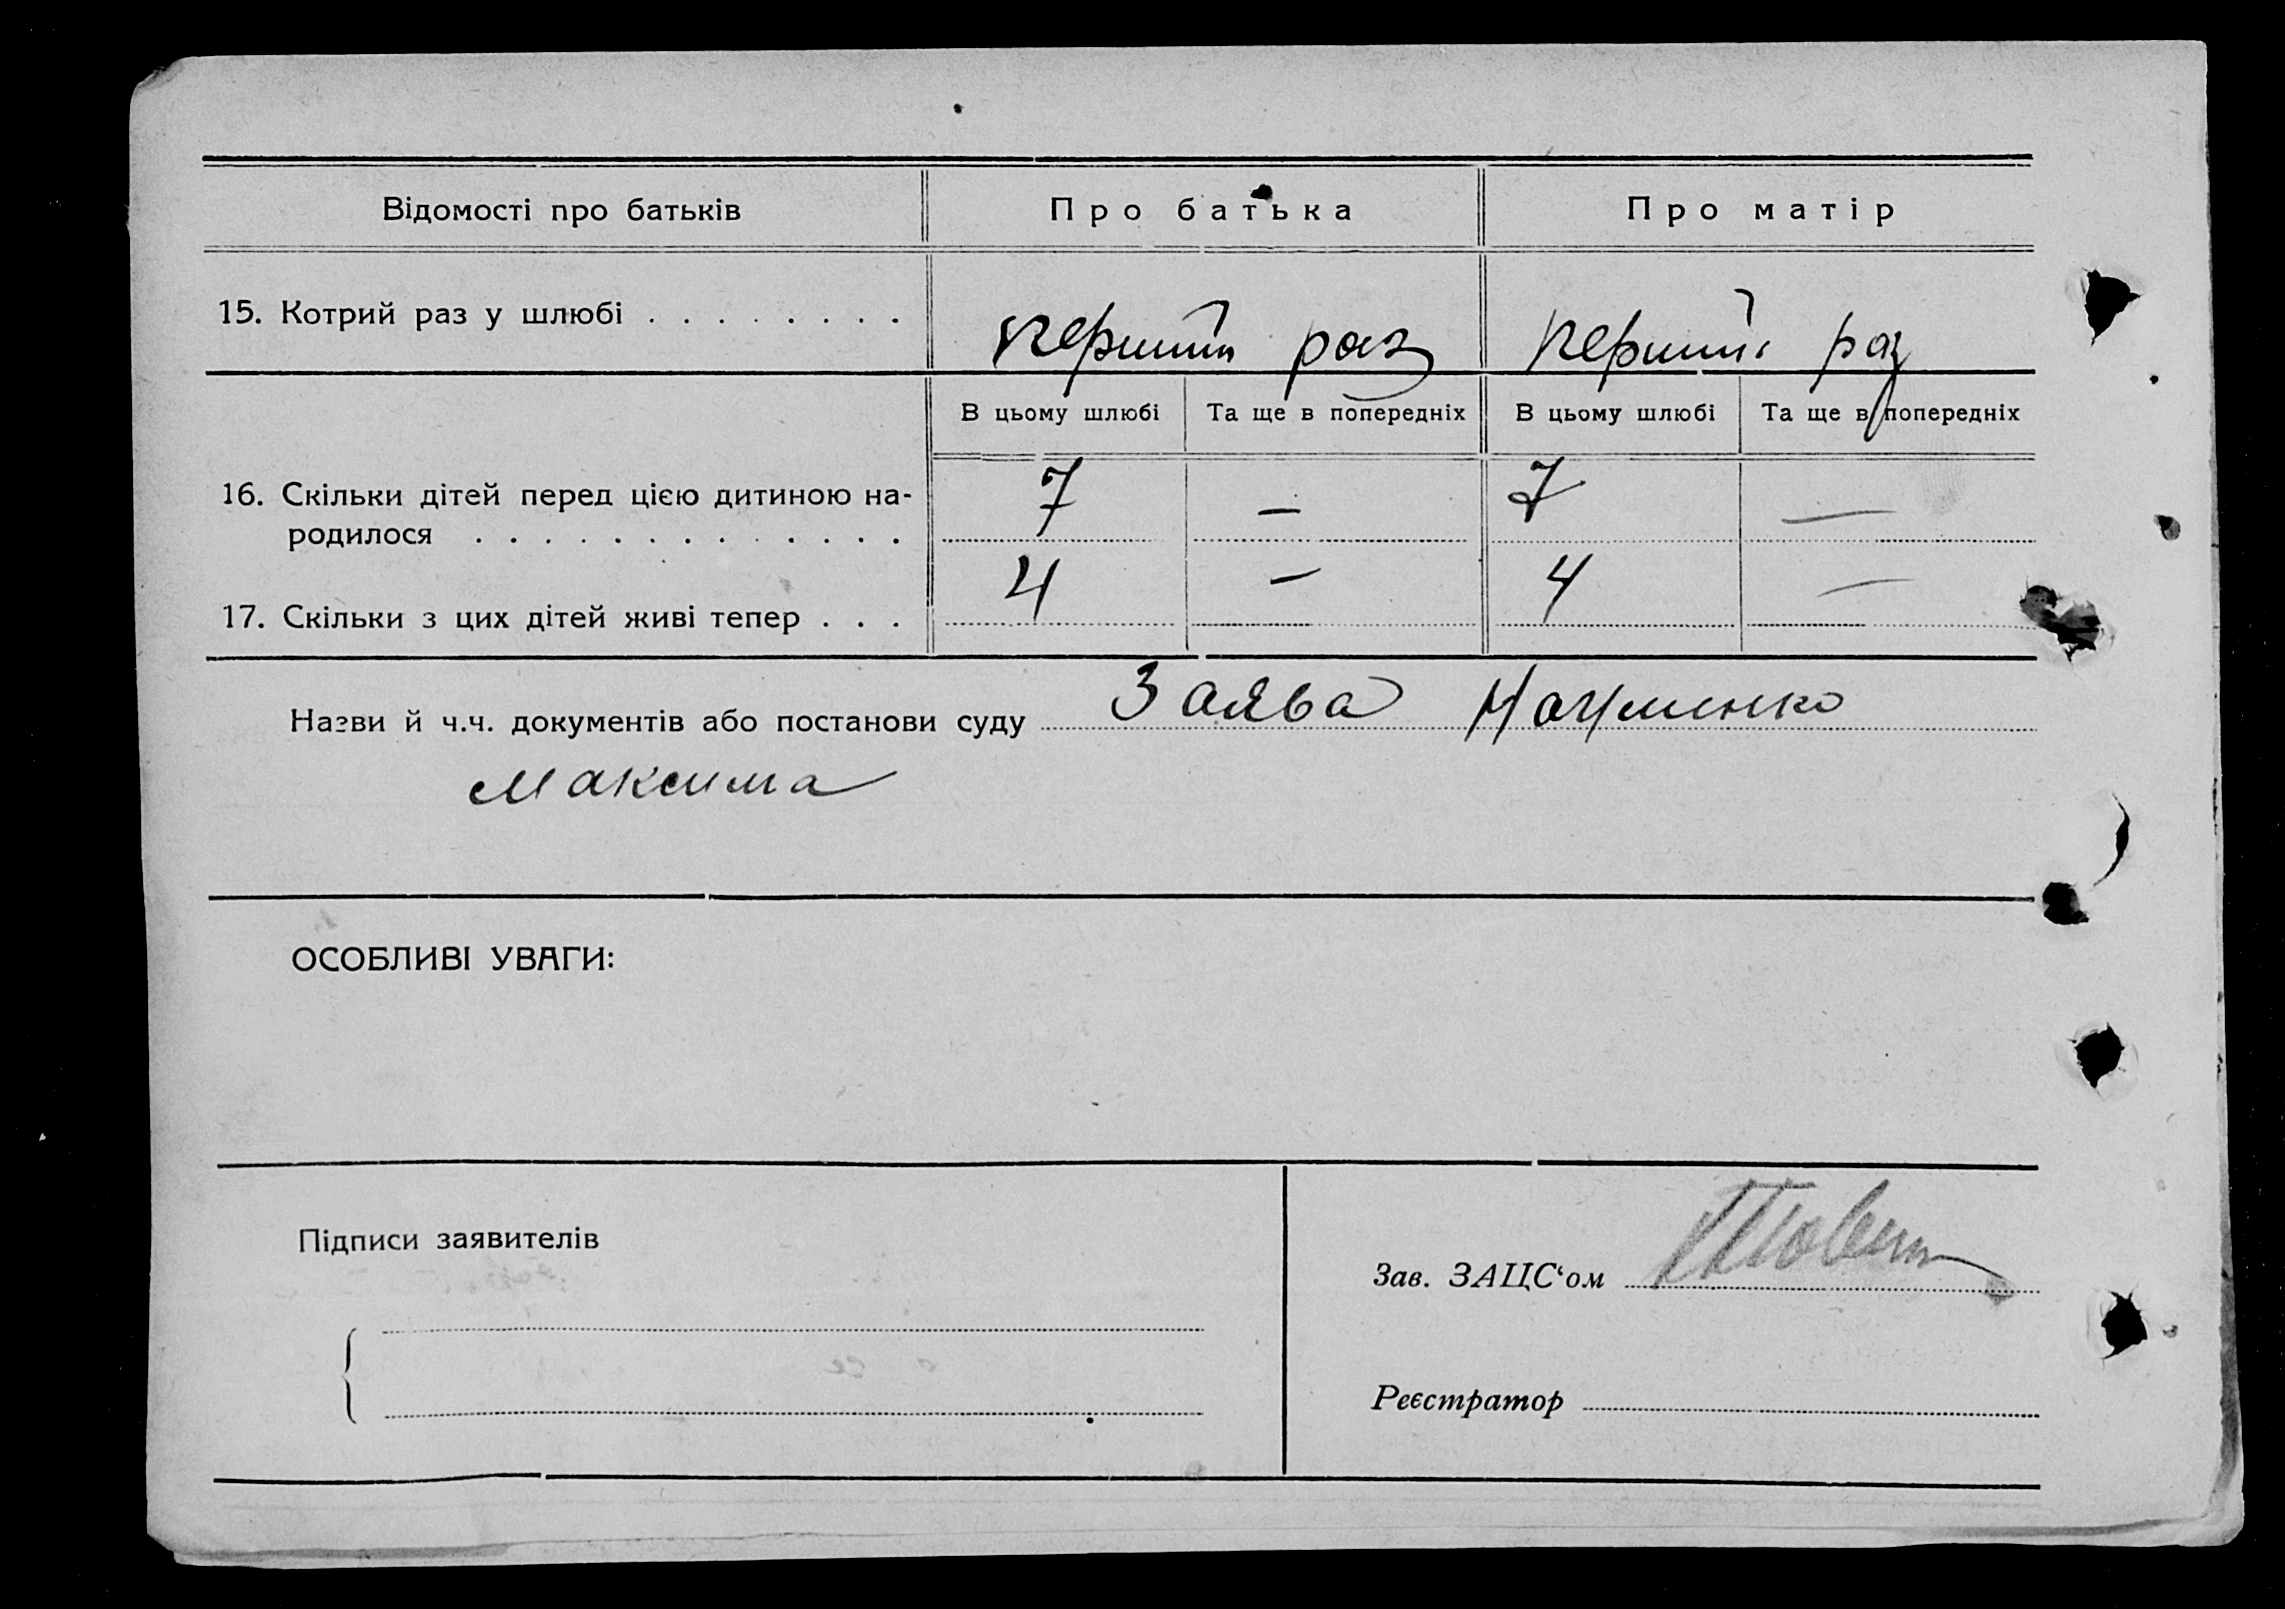 Відомості про батьків Про батька Про матір
15. Котрий раз у шлюбі . . . . . . . . перший раз перший раз
В цьому шлюбі Та ще в попередніх В цьому шлюбі Та ще в попередніх
16. Скільки дітей перед цією дитиною на-
родилося . . . . . . . . . . . . . 7 — 7 —
17. Скільки з цих дітей живі тепер . . . 4 — 4 —
Назви й ч.ч. документів або постанови суду Заява Науменко
Максима
ОСОБЛИВІ УВАГИ:
Підписи заявителів
Зав. ЗАЦС‘ом
Реєстратор